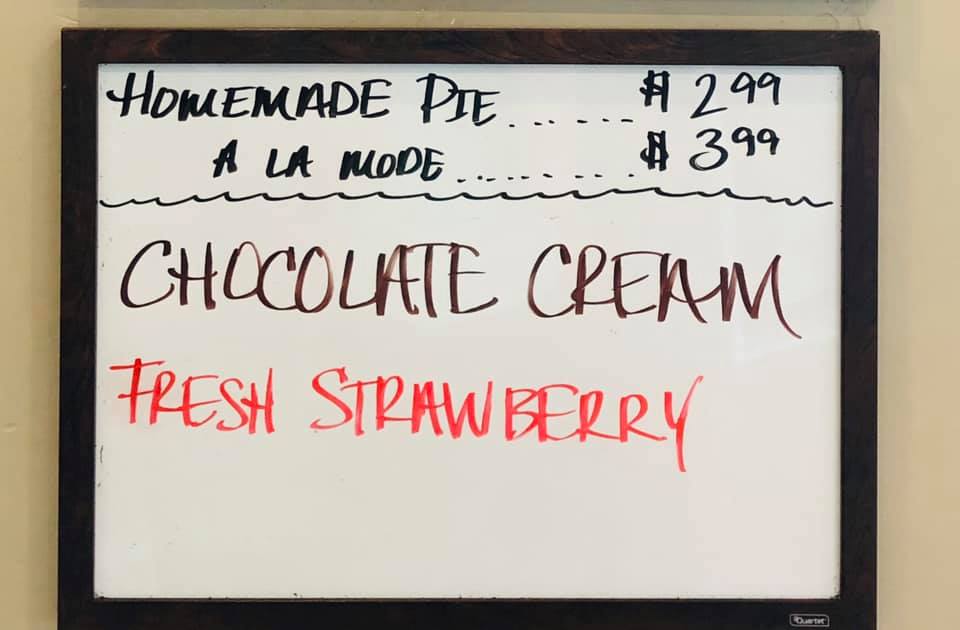 HOMEMADE PIE ........ $ 2.99
A LA MODE ......... $ 3.99
CHOCOLATE CREAM
FRESH STRAWBERRY
Quartet